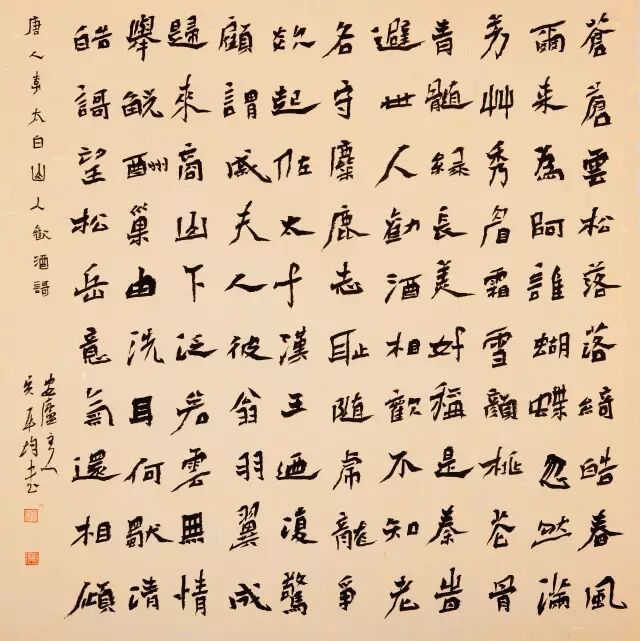 蒼蒼雲松落落綺皓春風
爾来為阿誰蝴蝶忽然滿
芳艸秀眉霜雪顏桃花骨
青髓緑長美好稱是秦旹
避世人勸酒相歡不知老
各守麋鹿志耻随虎龍爭
欻起佐太子漢王迺復驚
顧謂戚夫人彼翁羽翼成
歸來商山下泛若雲無情
舉酬巢由洗耳何清
皓謌望松岳意氣還相傾
唐人李太白山人勸酒謌
廬主人